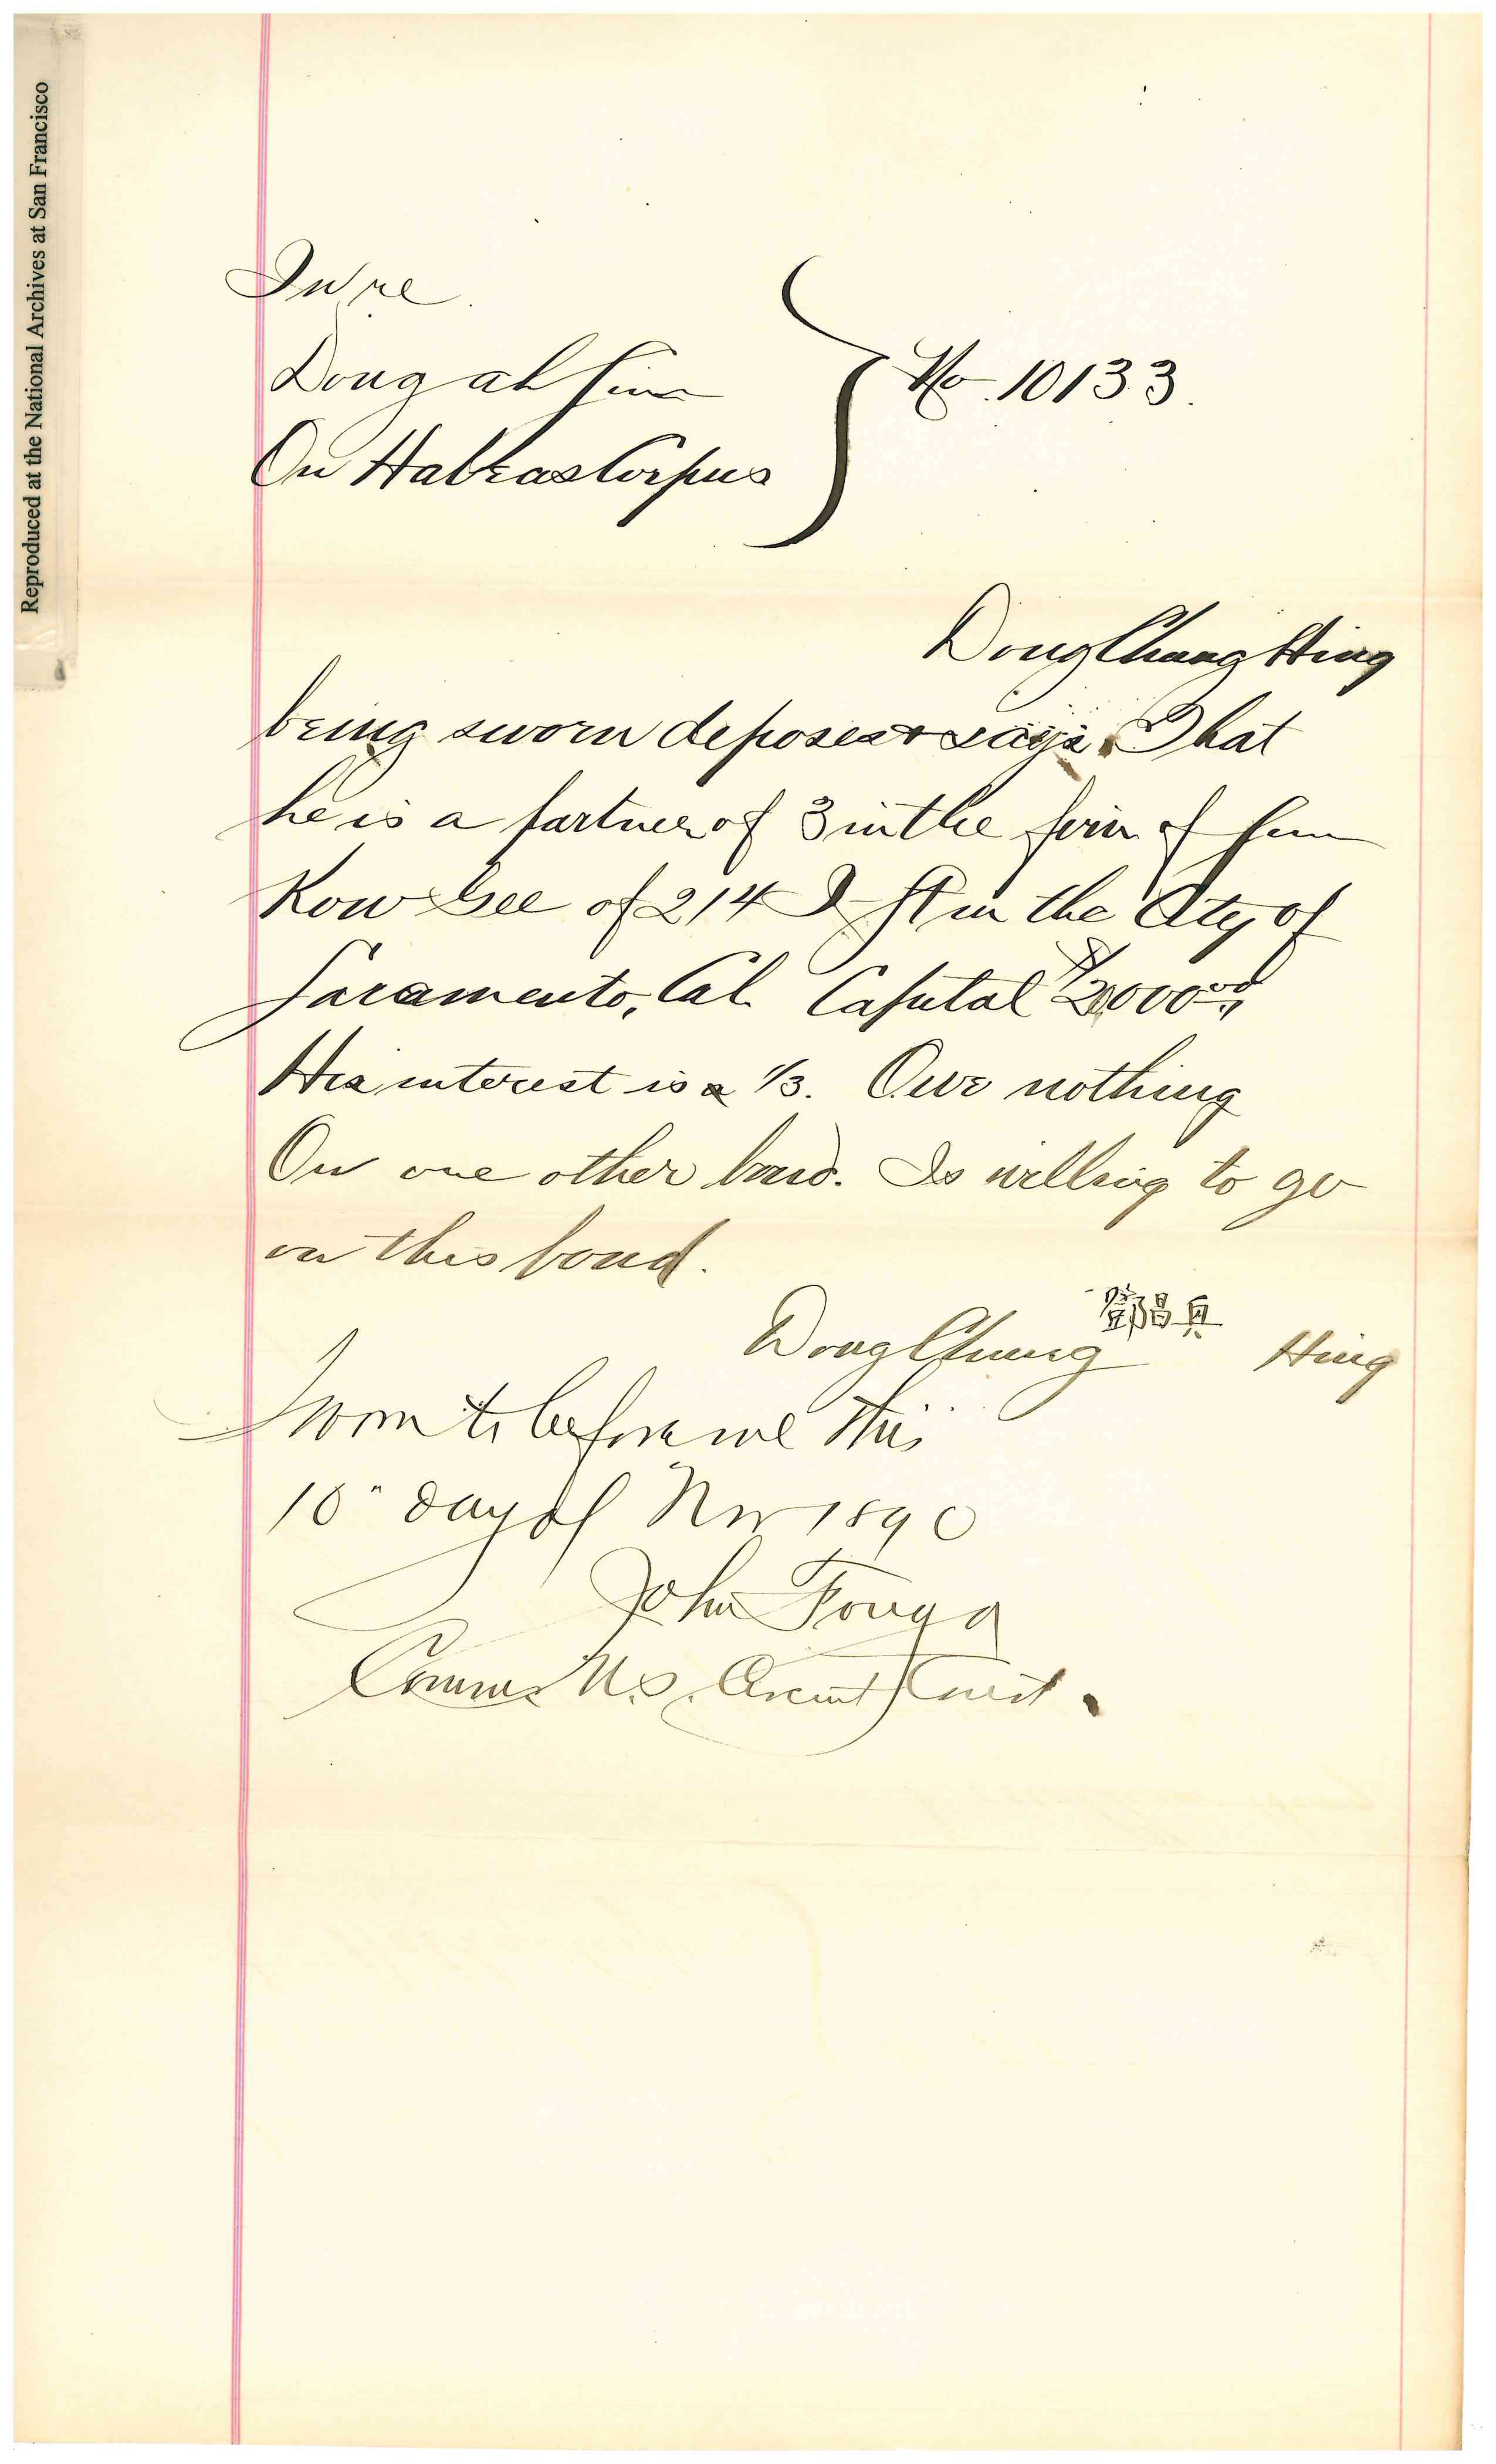 Reproduced at the National Archives at San Francisco
In re
Dong ah Sim
On Habeas Corpus
No. 10133.
Dong Chung Hing
being sworn deposes & says. That
he is a partner of 3 in the firm of Sum
Kow Gee of 214 I St in the City of
Sacramento, Cal. Capital $ 2000.00
His interest is a 1/3. Owe nothing
On one other bond. Is willing to go
on this bond.
鄧昌興
Dong Chung Hing
Sworn to before me this
10" day of Nov 1890
John Fouga
Commr U.S. Circuit Court.